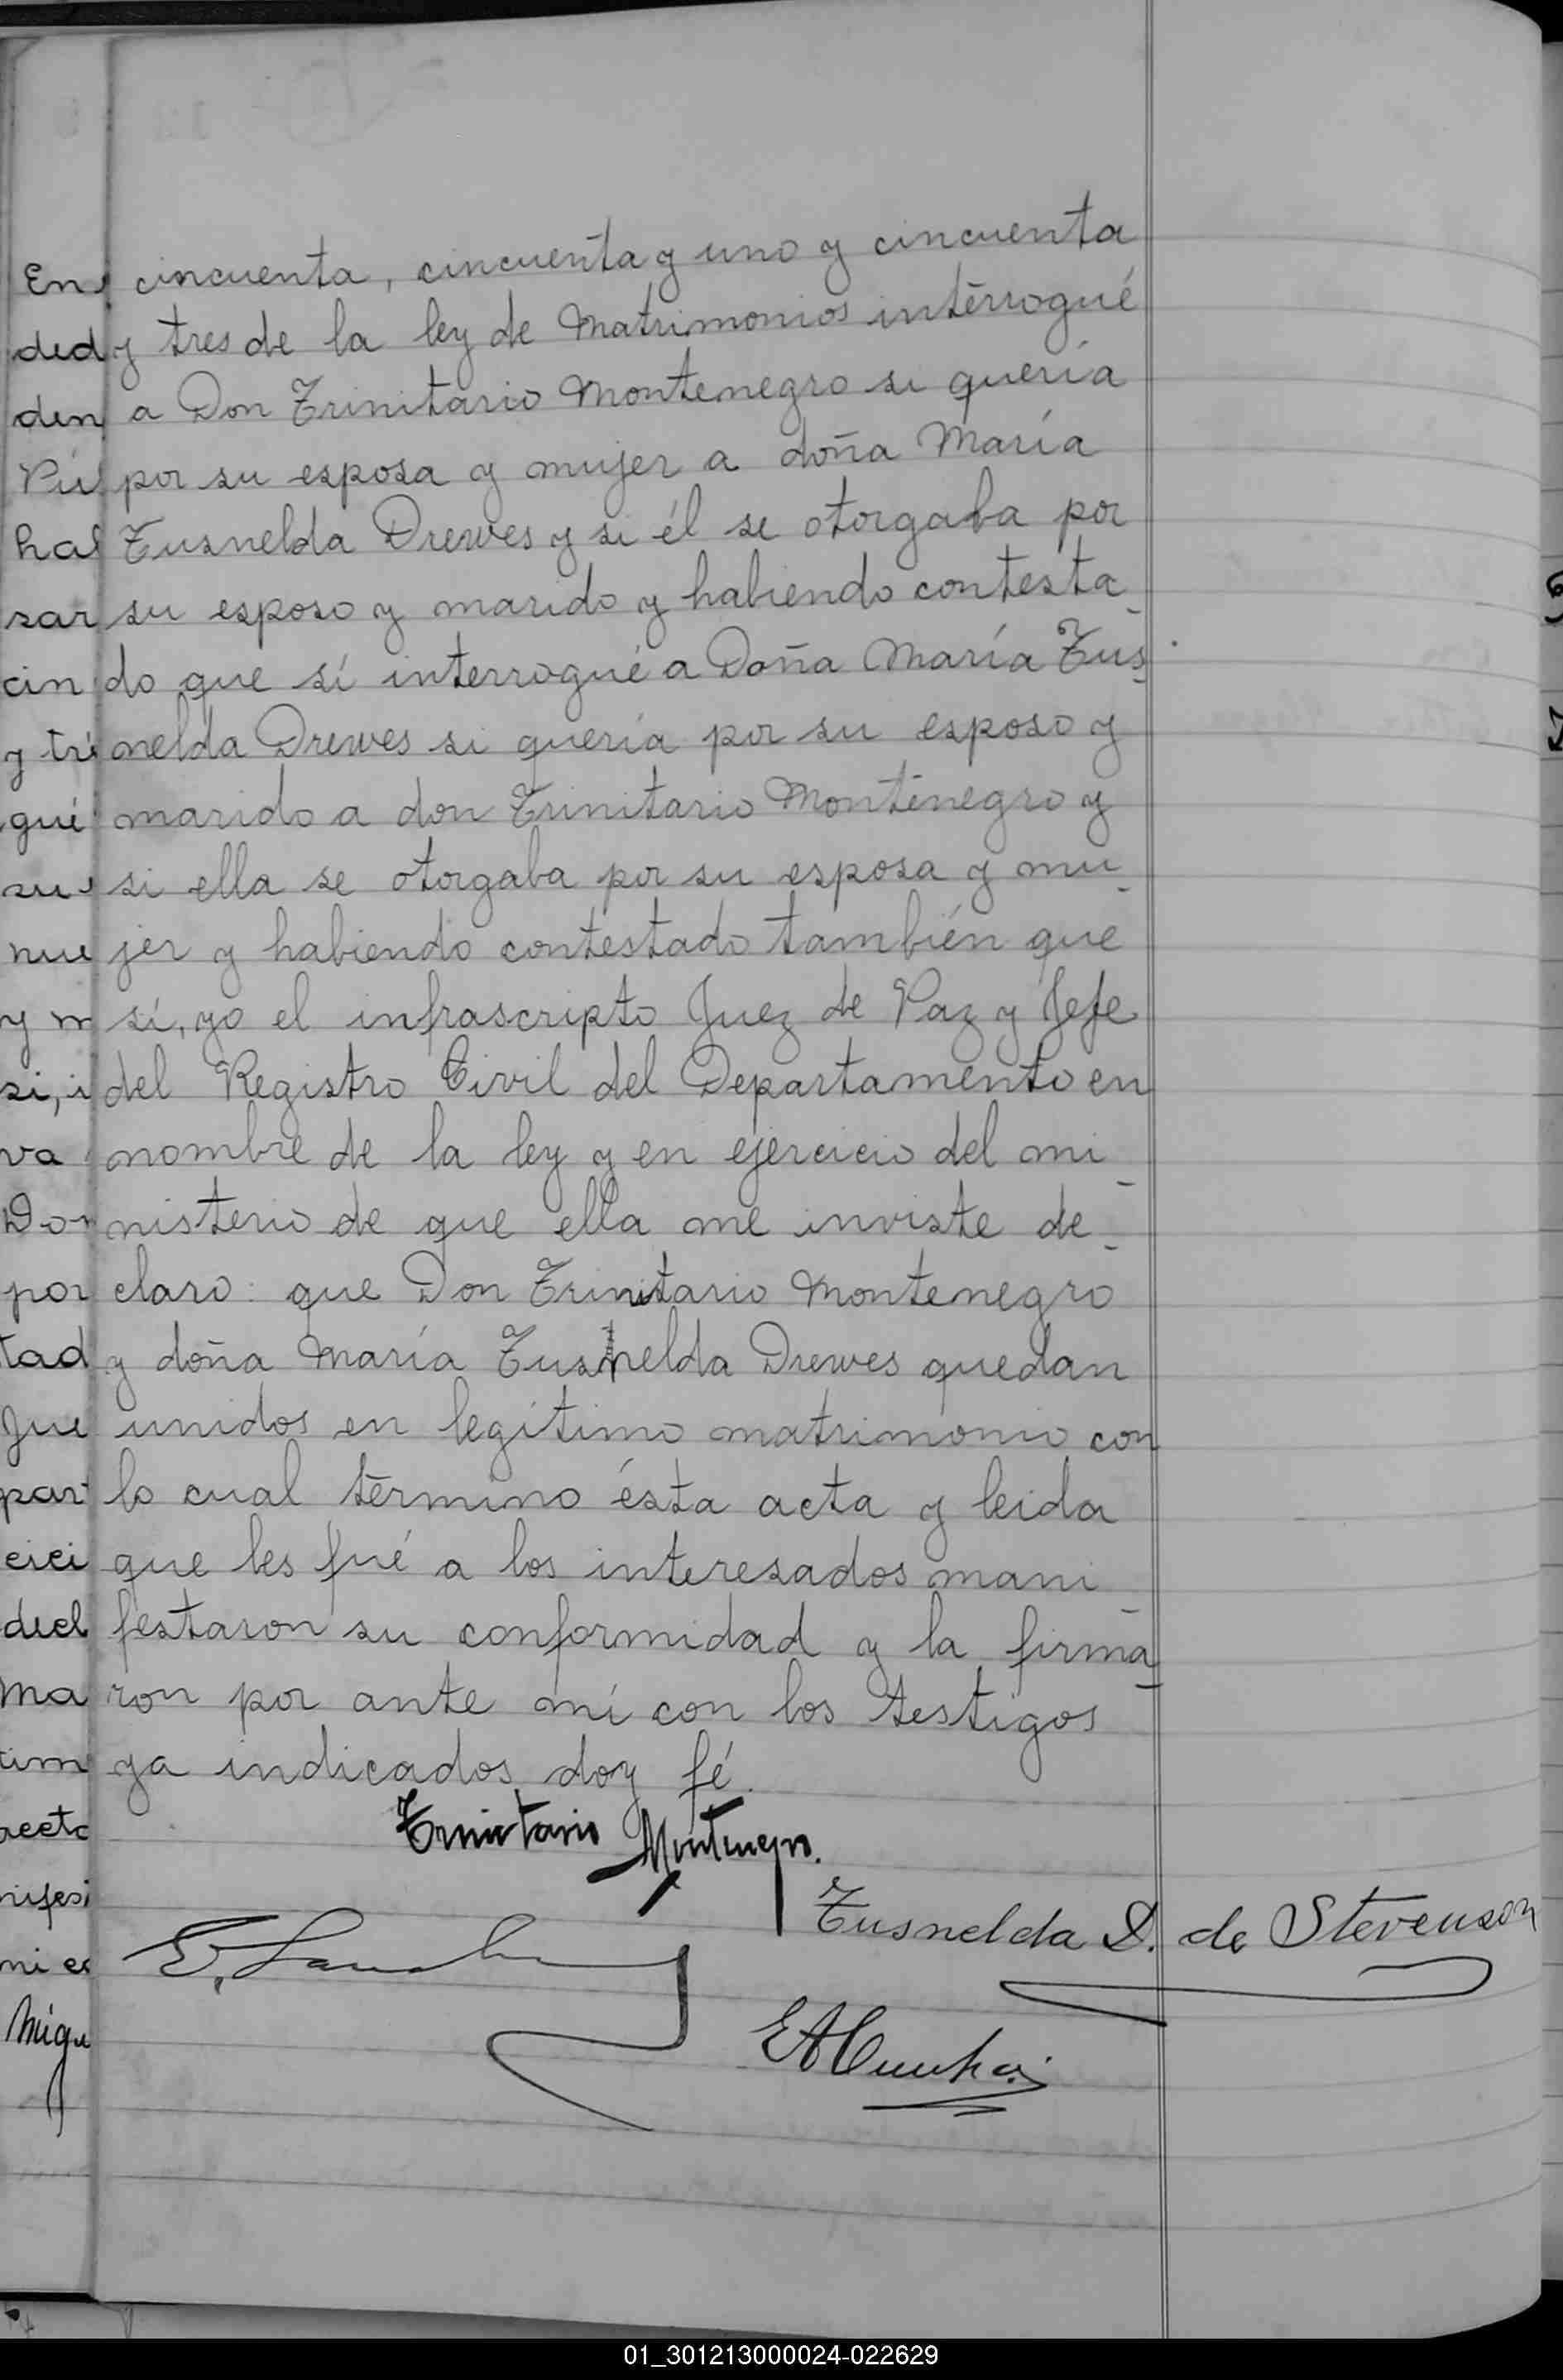 cincuenta, cincuenta y uno y cincuenta
y tres de la ley de Matrimonios intérrogué
a Don Trinitario Montenegro si quería
por su esposa y mujer a doña María
Tusnelda Drewes y si él se otorgaba por
su esposo y marido y habiendo contesta_
do que sí interrogué a Doña María Tus_
nelda Drewes si quería por su esposo y
marido a don Trinitario Montenegro y
si ella se otorgaba por su esposa y mu_
jer y habiendo contestado también que
sí, yo el infrascripto Juez de Paz y Jefe
del Registro Civil del Departamento en
nombre de la ley y en ejercicio del mi_
nisterio de que ella me inviste de_
claro: que Don Trinitario Montenegro
y doña María Tusnelda Drewes quedan
unidos en legítimo matrimonio con
lo cual término ésta acta y leida
que les fué a los interesados mani_
festaron su conformidad y la firma_
ron por ante mí con los testigos
ya indicados doy fé.
Trinitario Montenegro.
Tusnelda D. de Stevenson
En
ded
den
Pú
hal
sar
cin
y tri
gué
su
nue
y m
si, i
va
Don
por
tad
Jue
par
cici
decl
ma
tim
acta
nifes
mi es
Migu
01_301213000024-022629